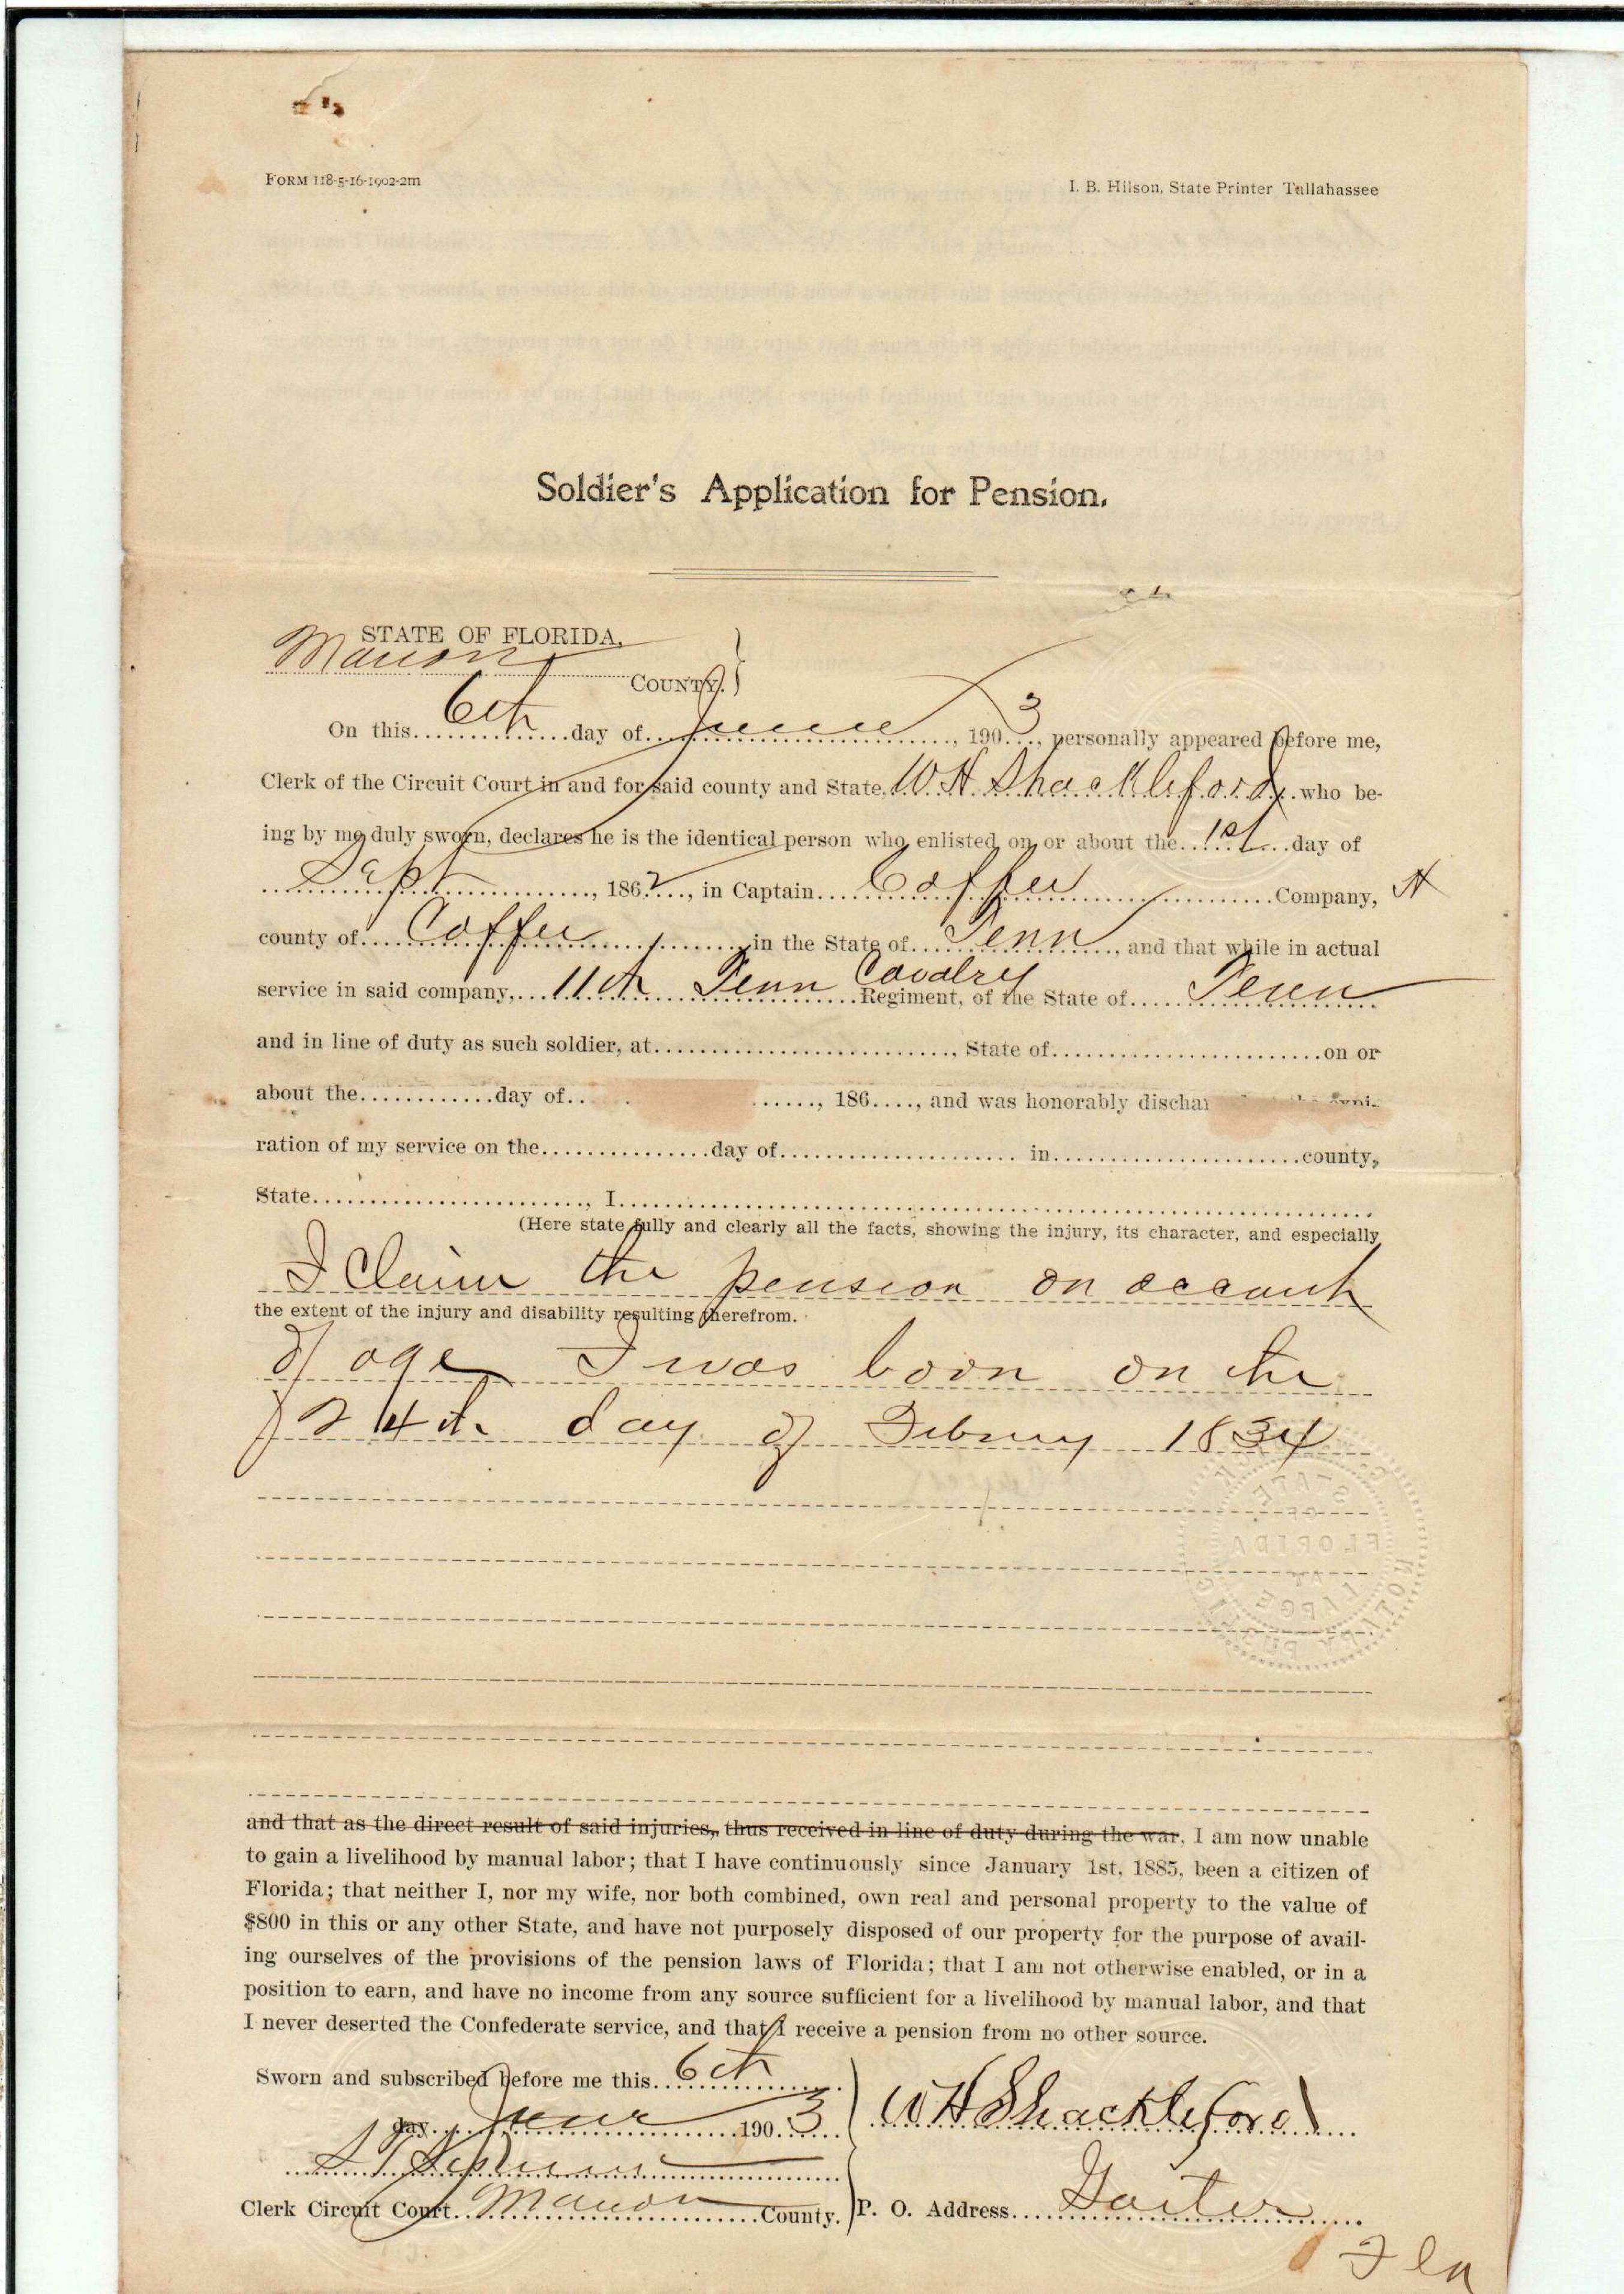 FORM 118-5-16-1902-2m
I. B. Hilson, State Printer Tallahassee
Soldier's Application for Pension.
STATE OF FLORIDA,
Marion
COUNTY.
On this 6th day of June, 1903, personally appeared before me,
Clerk of the Circuit Court in and for said county and State, W. H. Shackleford who be-
ing by me duly sworn, declares he is the identical person who enlisted on or about the 1st day of
Sept, 1862, in Captain Coffee Company, A
county of Coffee in the State of Tenn, and that while in actual
service in said company, 11th Tenn Cavalry Regiment, of the State of Tenn
and in line of duty as such soldier, at, State of on or
about the day of, 186, and was honorably dischar the expi-
ration of my service on the day of in county,
State, I
(Here state fully and clearly all the facts, showing the injury, its character, and especially
I Claim the pension on accaunt
the extent of the injury and disability resulting therefrom.
of age I was born on the
24th day of Febuary 1834
STATE
OF
FLORIDA
AT
LARGE
NOTARY PUBLIC
and that as the direct result of said injuries, thus received in line of duty during the war, I am now unable
to gain a livelihood by manual labor; that I have continuously since January 1st, 1885, been a citizen of
Florida; that neither I, nor my wife, nor both combined, own real and personal property to the value of
$800 in this or any other State, and have not purposely disposed of our property for the purpose of avail-
ing ourselves of the provisions of the pension laws of Florida; that I am not otherwise enabled, or in a
position to earn, and have no income from any source sufficient for a livelihood by manual labor, and that
I never deserted the Confederate service, and that I receive a pension from no other source.
Sworn and subscribed before me this 6th
day June 1903
W H Shackleford
Clerk Circuit Court Marion County.
P. O. Address Gaiter
Fla